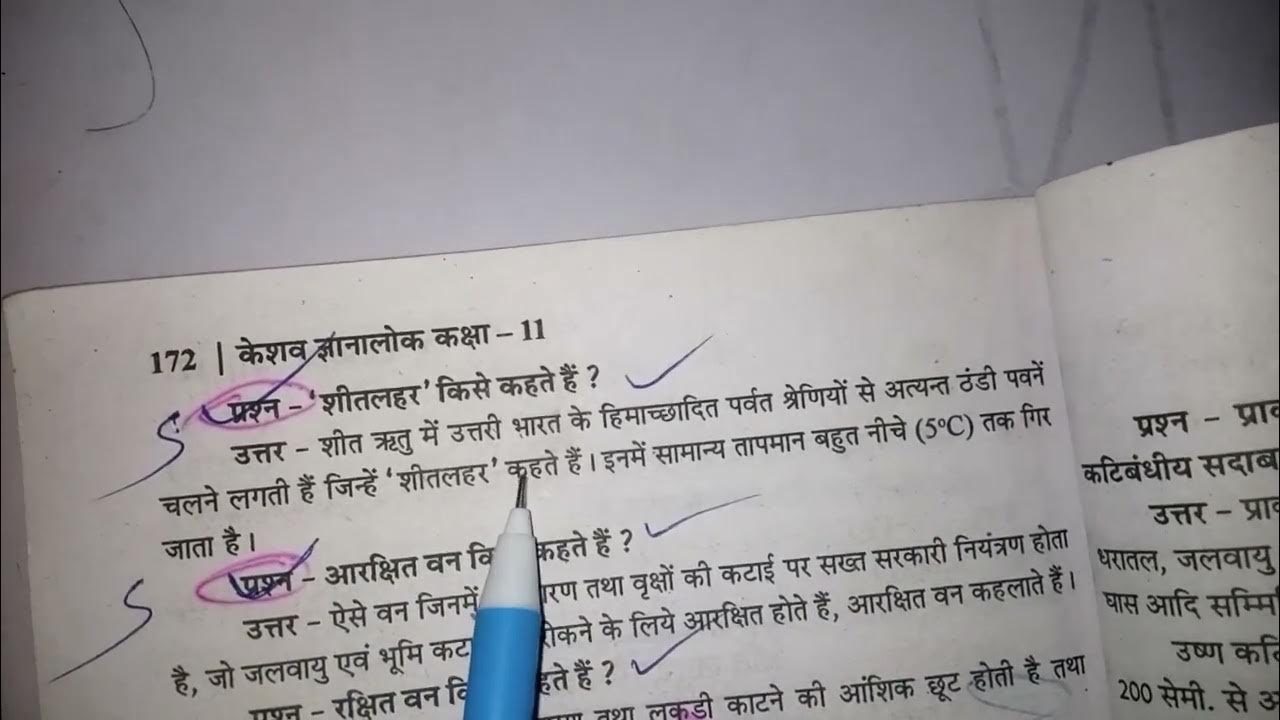 172 | केशव ज्ञानालोक कक्षा – 11
प्रश्न – 'शीतलहर' किसे कहते हैं ?
उत्तर – शीत ऋतु में उत्तरी भारत के हिमाच्छादित पर्वत श्रेणियों से अत्यन्त ठंडी पवनें
चलने लगती हैं जिन्हें 'शीतलहर' कहते हैं । इनमें सामान्य तापमान बहुत नीचे (5°C) तक गिर
जाता है ।
प्रश्न – आरक्षित वन कहते हैं ?
उत्तर – ऐसे वन जिनमें तथा वृक्षों की कटाई पर सख्त सरकारी नियंत्रण होता
है, जो जलवायु एवं भूमि के लिये आरक्षित होते हैं, आरक्षित वन कहलाते हैं ।
प्रश्न – रक्षित वन हैं ?
तथा लकड़ी काटने की आंशिक छूट होती है तथा
प्रश्न –
कटिबंधीय
उत्तर –
धरातल, जलवायु
घास आदि
उष्ण
200 सेमी. से